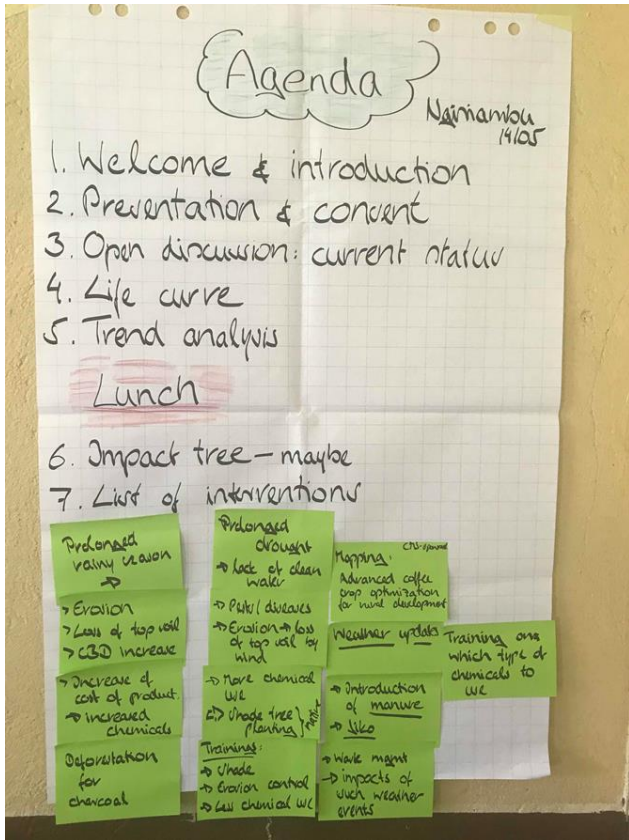 Agenda
14/05
1. Welcome & introduction
2. Presentation & consent
3. Open discussion: current status
4. Life curve
5. Trend analysis
Lunch
6. Impact tree - maybe
7. List of interventions
Prolonged
rainy season
→
→ Erosion
→ Loss of top soil
→ CBD increase
→ Increase of
cost of product.
→ increased
chemicals
Deforestation
for
charcoal
Prolonged
drought
→ Lack of clean
water
→ Pests/diseases
→ Erosion → loss
of top soil by
wind
→ More chemical
use
→ Shade tree
planting
Trainings:
→ Shade
→ Erosion control
→ Less chemical use
Mapping:
Advanced coffee
crop optimization
for rural development
Weather update
→ Introduction
of manure
→ Jiko
→ Waste mgmt
→ impacts of
such weather
events
Training ons
which type of
chemicals to
use